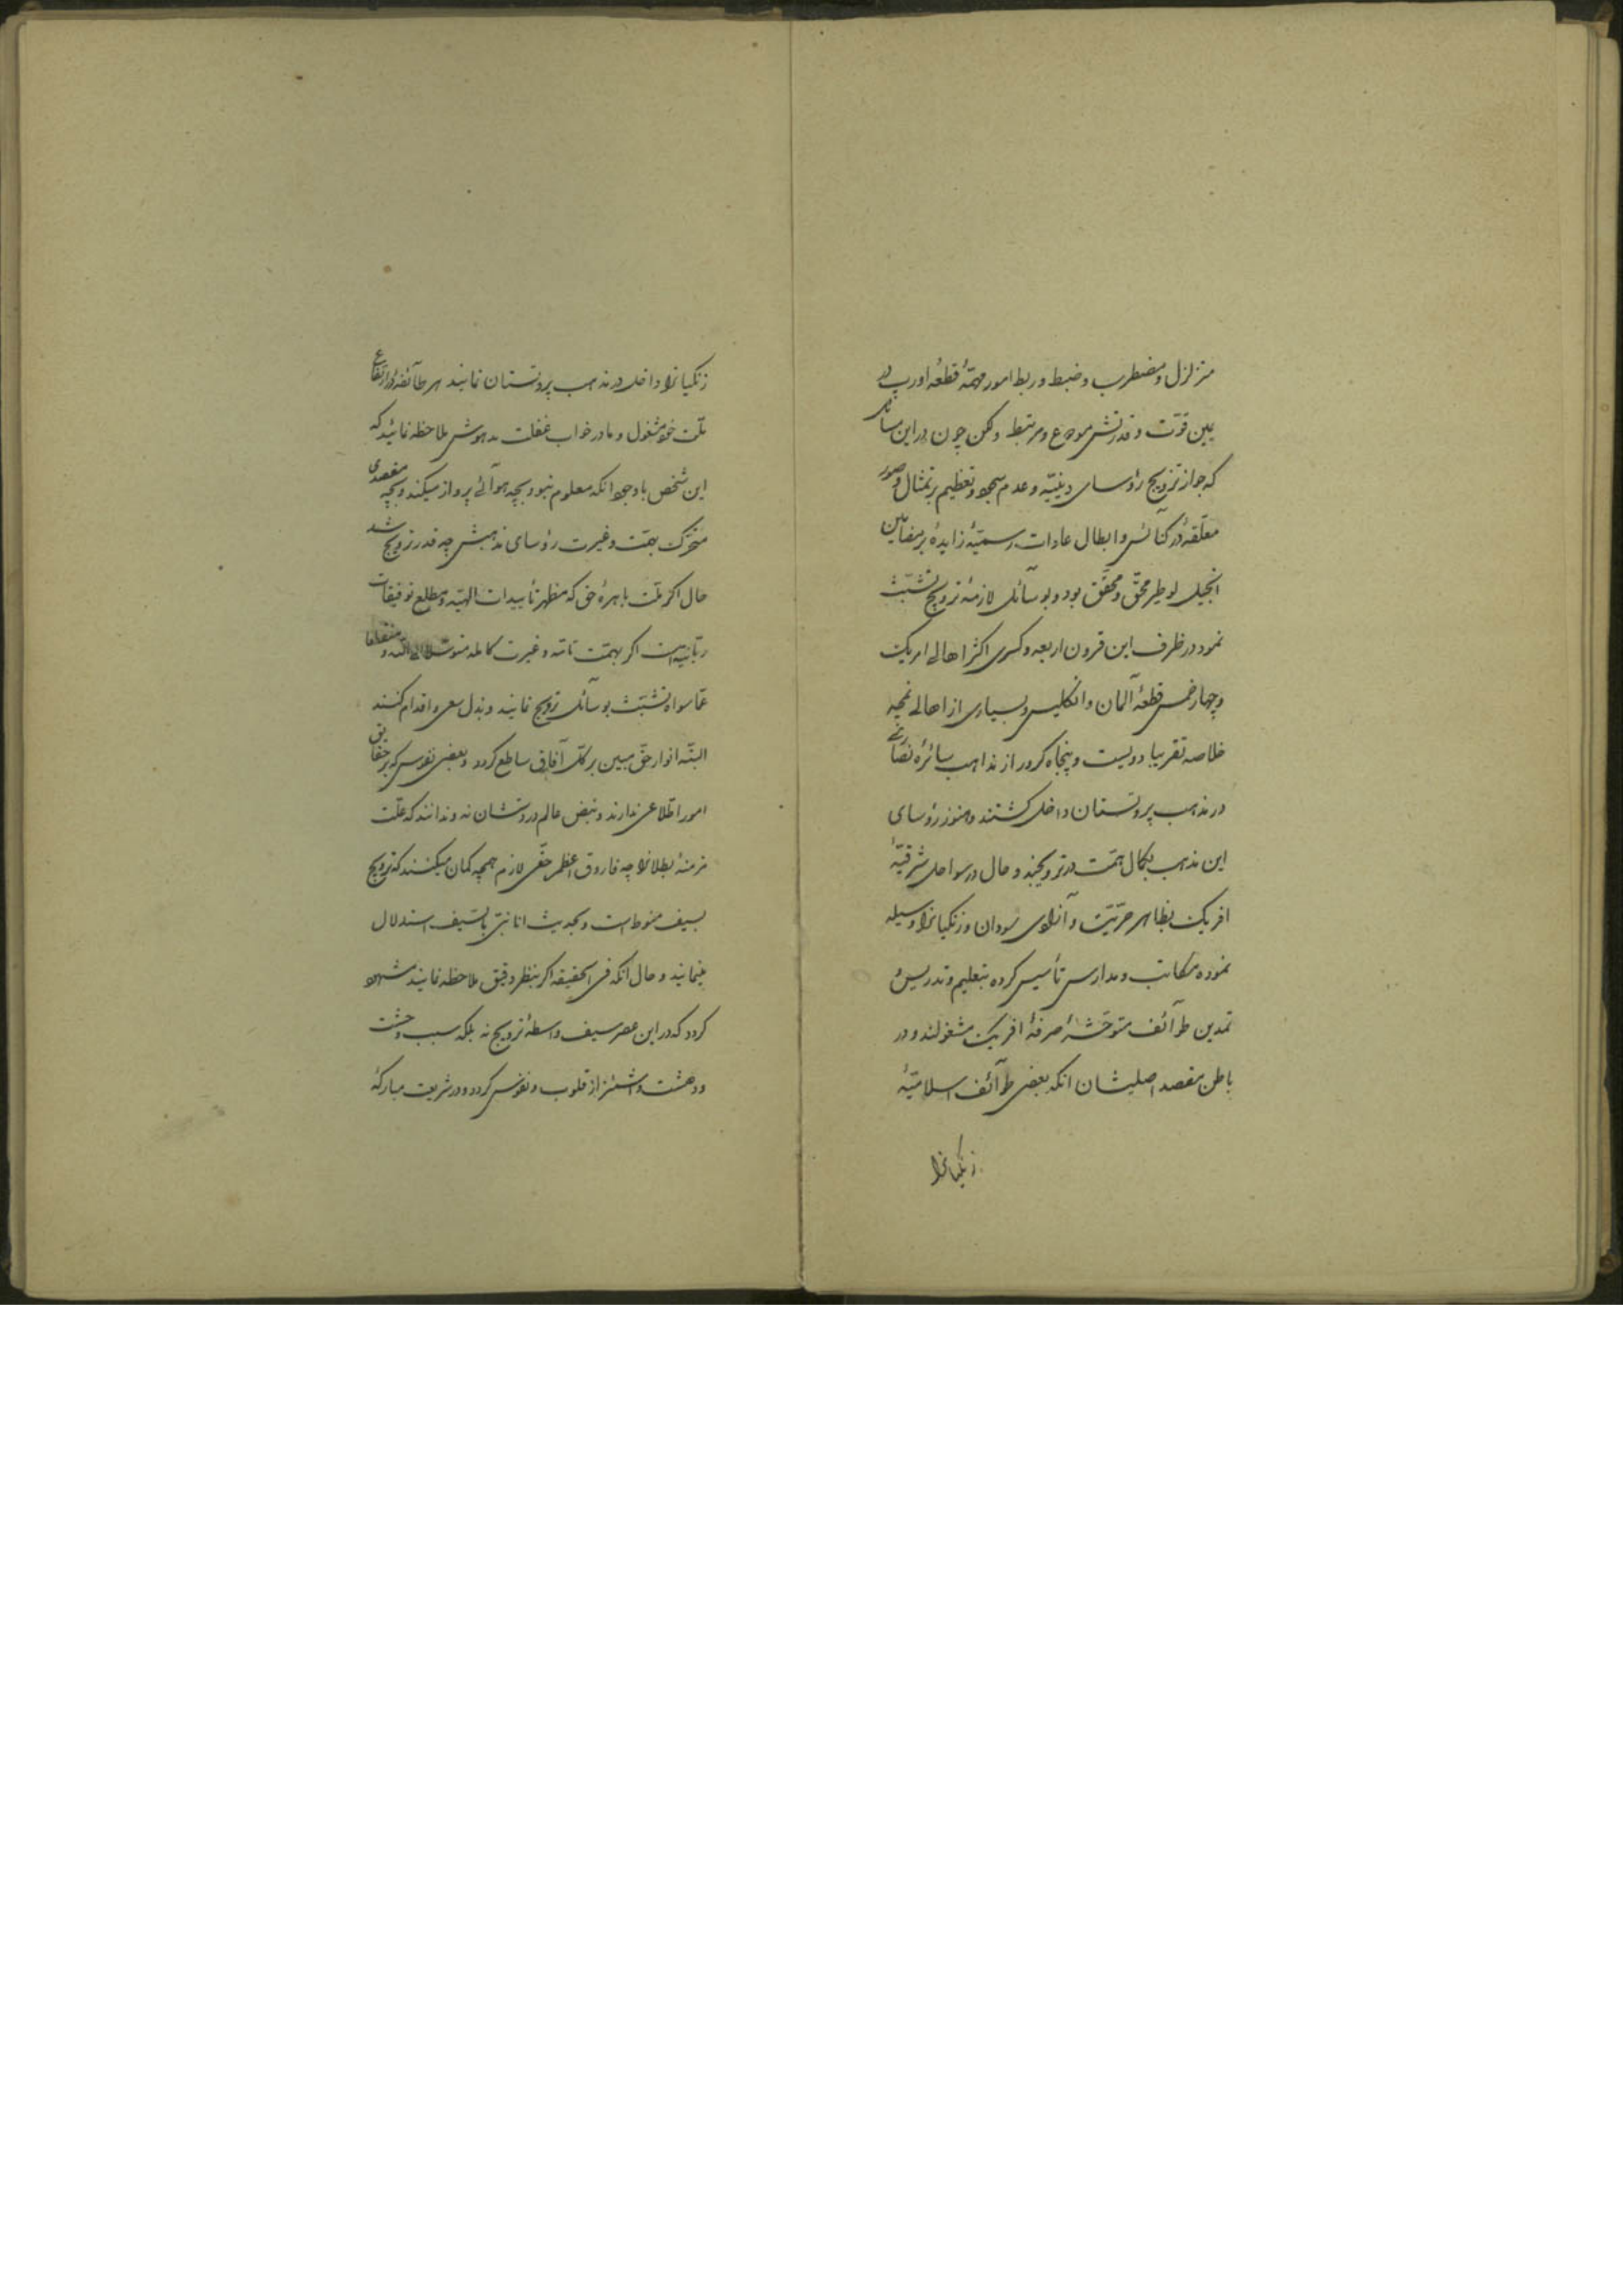 متزلزل و مضطرب و ضبط و ربط امور مهمّهٔ قطعهٔ اورپ در
یمین قوّت و قدرتش موضوع و مرتبط ولکن چون در این مسائل
که جواز تزویج رؤسای دینیّه و عدم سجود و تعظیم بر تمثال و صور
معلّقهٔ در کنائس و ابطال عادات رسمیّهٔ زایدهٔ بر مضامین
انجیل لوطر محقّ و محقّق بود و بوسائل لازمهٔ ترویج تشبّث
نمود در ظرف این قرون اربعه و کسری اکثر اهالی امریک
و چهار خمس قطعهٔ آلمان و انکلیس و بسیاری از اهالی نمچه
خلاصه تقریبا دویست و پنجاه کرور از مذاهب سائرهٔ نصاری
در مذهب پروتستان داخل کشتند و هنوز رؤسای
این مذهب بکمال همّت در ترویجند و حال در سواحل شرقیّهٔ
افریک بظاهر حرّیّت و آزادی سودان و زنکیانرا وسیله
نموده مکاتب و مدارس تأسیس کرده بتعلیم و تدریس و
تمدین طوآئف متوحّشهٔ صرفهٔ افریک مشغولند و در
باطن مقصد اصلیشان انکه بعضی طوآئف اسلامیّهٔ
زنکیانرا
زنکیانرا داخل در مذهب پروتستان نمایند هر طآئفه در ارتفاع
ملّت خود مشغول و ما در خواب غفلت مدهوش ملاحظه نمائید که
این شخص با وجود انکه معلوم نبود بچه هوآئی پرواز میکند و بچه مقصدی
متحرّک بهمّت و غیرت رؤسای مذهبش چه قدر ترویج شد
حال اکر ملّت باهرهٔ حق که مظهر تأییدات الهیّه و مطلع توفیقات
ربّانیه است اکر بهمّت تامّه و غیرت کامله متوسّلا الی اللّه و منقطعا
عمّا سواه تشبّث بوسآئل ترویج نمایند و بذل سعی و اقدام کنند
البتّه انوار حقّ مبین بر کلّ آفاق ساطع کردد و بعضی نفوس که بر حقایق
امور اطّلاعی ندارند و نبض عالم در دستشان نه و ندانند که علّت
مزمنهٔ بطلانرا چه فاروق اعظم حقّی لازم همچه کمان میکنند که ترویج
بسیف منوط است و بحدیث انا نبیّ بالسّیف استدلال
مینمایند و حال انکه فی الحقیقه اکر بنظر دقیق ملاحظه نمایند مشهود
کردد که در این عصر سیف واسطهٔ ترویج نه بلکه سبب وحشت
و دهشت و اشمئزاز قلوب و نفوس کردد و در شریعت مبارکهٔ